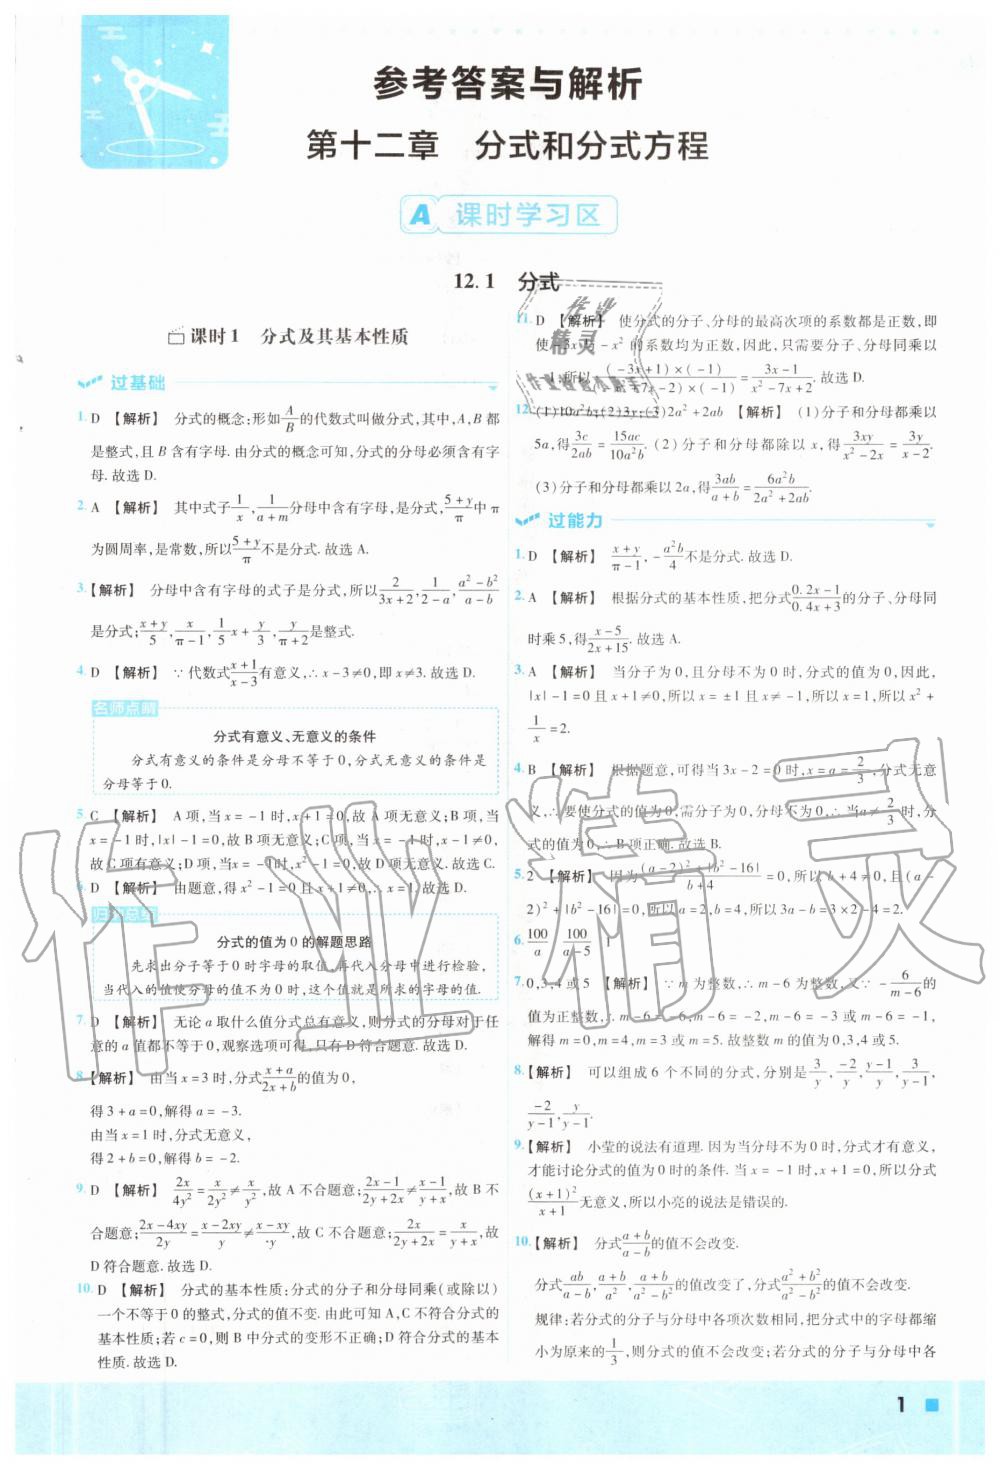 参考答案与解析
第十二章 分式和分式方程
A 课时学习区
12.1 分式
课时1 分式及其基本性质
过基础
1. D 【解析】 分式的概念:形如A/B的代数式叫做分式,其中,A,B都
是整式,且B含有字母.由分式的概念可知,分式的分母必须含有字
母.故选D.
2. A 【解析】 其中式子1/x,1/(a+m)分母中含有字母,是分式,(5+y)/π中π
为圆周率,是常数,所以(5+y)/π不是分式.故选A.
3.【解析】 分母中含有字母的式子是分式,所以2/(3x+2),1/(2-a),(a²-b²)/(a-b)
是分式;(x+y)/5,x/(π-1),1/5x+y/3,y/(π+2)是整式.
4. D 【解析】 ∵代数式(x+1)/(x-3)有意义,∴x-3≠0,即x≠3.故选D.
名师点睛
分式有意义、无意义的条件
分式有意义的条件是分母不等于0,分式无意义的条件是
分母等于0.
5. C 【解析】 A项,当x=-1时,x+1=0,故A项无意义;B项,当
x=-1时,|x|-1=0,故B项无意义;C项,当x=-1时,x-1≠0,
故C项有意义;D项,当x=-1时,x²-1=0,故D项无意义.故选C.
6. D 【解析】 由题意,得x²-1=0且x+1≠0,∴x=1.故选D.
归纳总结
分式的值为0的解题思路
先求出分子等于0时字母的取值,再代入分母中进行检验,
当代入的值使分母的值不为0时,这个值就是所求的字母的值.
7. D 【解析】 无论a取什么值分式总有意义,则分式的分母对于任
意的a值都不等于0,观察选项可得,只有D符合题意.故选D.
8.【解析】 由当x=3时,分式(x+a)/(2x+b)的值为0,
得3+a=0,解得a=-3.
由当x=1时,分式无意义,
得2+b=0,解得b=-2.
9. D 【解析】 2x/4y²=x/2y²≠x/y²,故A不合题意;(2x-1)/(2y+2x)≠(x-1)/(y+x),故B不
合题意;(2x-4xy)/2y=(x-2xy)/y≠(x-xy)/y,故C不合题意;2x/(2y+2x)=x/(y+x),故
D符合题意.故选D.
10. D 【解析】 分式的基本性质:分式的分子和分母同乘(或除以)
一个不等于0的整式,分式的值不变.由此可知A,C不符合分式的
基本性质;若c=0,则B中分式的变形不正确;D符合分式的基本
性质.故选D.
11. D 【解析】 使分式的分子、分母的最高次项的系数都是正数,即
使-3x与-x²的系数均为正数,因此,只需将分子、分母同乘以
-1.所以((-3x+1)×(-1))/((-x²+7x-2)×(-1))=(3x-1)/(x²-7x+2).故选D.
12.(1)10a²b;(2)3y;(3)2a²+2ab 【解析】 (1)分子和分母都乘以
5a,得3c/2ab=15ac/10a²b.(2)分子和分母都除以x,得3xy/(x²-2x)=3y/(x-2).
(3)分子和分母都乘以2a,得3ab/(a+b)=6a²b/(2a²+2ab).
过能力
1. D 【解析】 (x+y)/(π-1),-a²b/4不是分式.故选D.
2. A 【解析】 根据分式的基本性质,把分式(0.2x-1)/(0.4x+3)的分子、分母同
时乘5,得(x-5)/(2x+15).故选A.
3. A 【解析】 当分子为0,且分母不为0时,分式的值为0,因此,
|x|-1=0且x+1≠0,所以x=±1且x≠-1,所以x=1,所以x²+
1/x=2.
4. B 【解析】 根据题意,可得当3x-2=0时,x=a=2/3,分式无意
义,∴要使分式的值为0,需分子为0,分母不为0,∴当a≠2/3时,分
式的值为0,∴B项正确.故选B.
5. 2 【解析】 因为((a-2)²+|b²-16|)/(b+4)=0,所以b+4≠0,且(a-
2)²+|b²-16|=0,所以a=2,b=4,所以3a-b=3×2-4=2.
6. 100/a 100/(a-5) 1
7. 0,3,4或5 【解析】 ∵m为整数,∴m-6为整数,又∵-6/(m-6)的
值为正整数,∴m-6=-6,m-6=-2,m-6=-3或m-6=-1,
解得m=0,m=4,m=3或m=5.故整数m的值为0,3,4或5.
8.【解析】 可以组成6个不同的分式,分别是3/y,-2/y,(y-1)/y,3/(y-1),
-2/(y-1),y/(y-1).
9.【解析】 小莹的说法有道理.因为当分母不为0时,分式才有意义,
才能讨论分式的值为0时的条件.当x=-1时,x+1=0,所以分式
(x+1)²/(x+1)无意义,所以小亮的说法是错误的.
10.【解析】 分式(a+b)/(a-b)的值不会改变.
分式ab/(a-b),(a+b)/a²,(a+b)/(a²-b²)的值改变了,分式(a²+b²)/(a²-b²)的值不会改变.
规律:若分式的分子与分母中各项次数相同,把分式中的字母都缩
小为原来的1/3,则分式的值不会改变;若分式的分子与分母中各
1
作业精灵